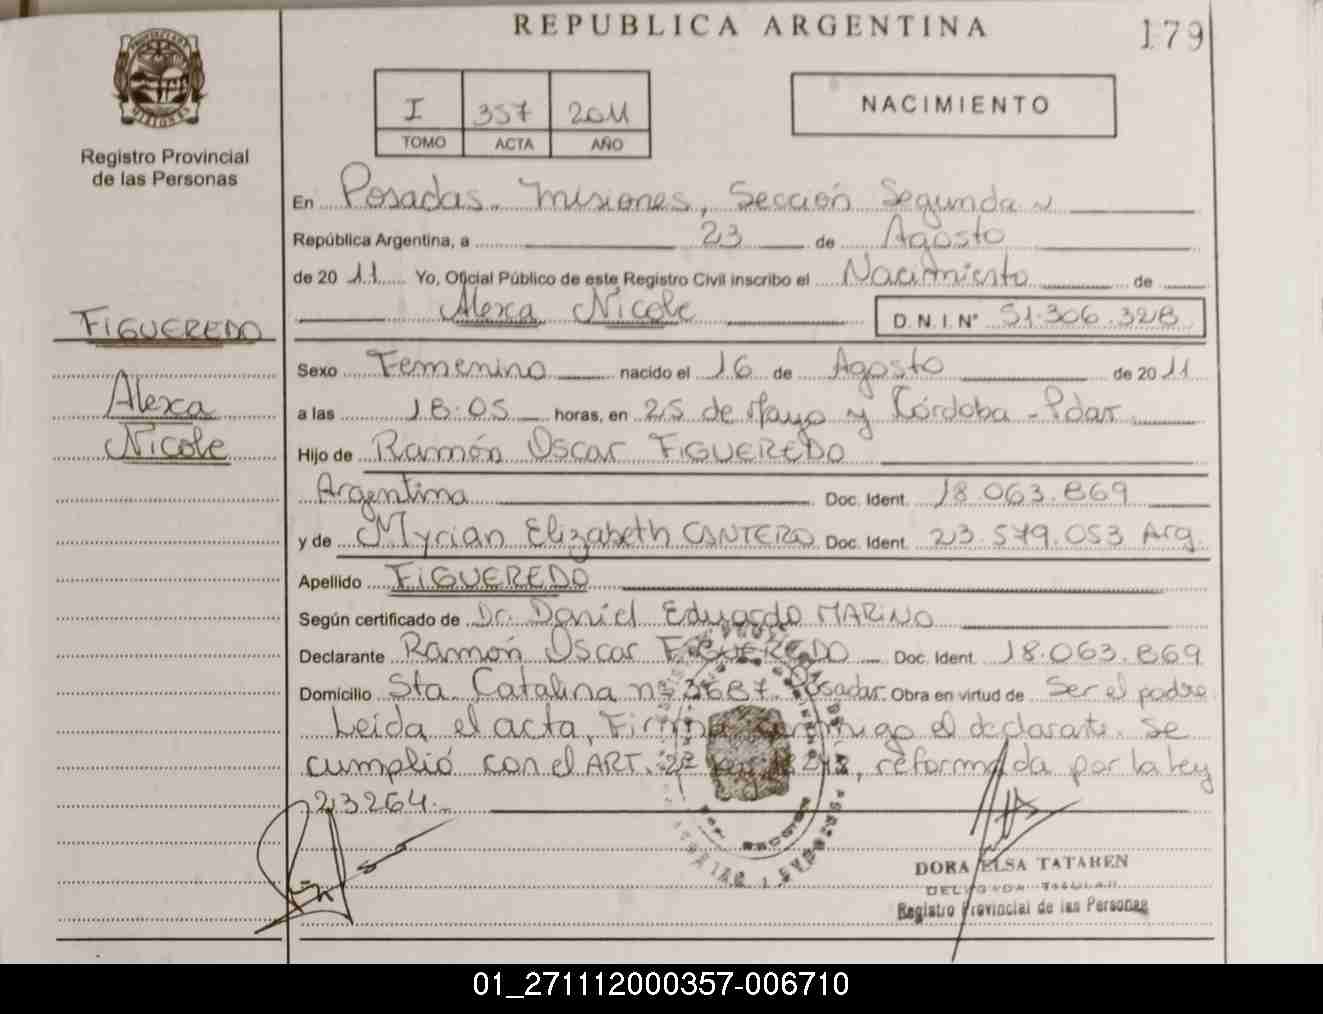 REPUBLICA ARGENTINA
179
I 357 2011
TOMO ACTA AÑO
NACIMIENTO
Registro Provincial
de las Personas
En Posadas. Misiones, Sección Segunda
República Argentina, a 23 de Agosto
de 2011 Yo, Oficial Público de este Registro Civil inscribo el Nacimiento de
Alexa Nicole D.N.I. Nº 51.306.328
FIGUEREDO
Alexa
Nicole
Sexo Femenino nacido el 16 de Agosto de 2011
a las 18:05 horas, en 25 de Mayo y Córdoba - Pdas.
Hijo de Ramón Oscar FIGUEREDO
Argentina Doc. Ident. 18.063.869
y de Myrian Elizabeth CANTERO Doc. Ident. 23.579.053 Arg.
Apellido FIGUEREDO
Según certificado de Dr. Daniel Eduardo MARINO
Declarante Ramón Oscar FIGUEREDO Doc. Ident. 18.063.869
Domicilio Sta. Catalina nº 3687. Posadas. Obra en virtud de Ser el padre
Leída el acta, Firma conmigo el declarante. Se
cumplió con el ART. reformada por la Ley
23264.-
DORA ELSA TATAREN
DELEGADA TITULAR
Registro Provincial de las Personas
01_271112000357-006710